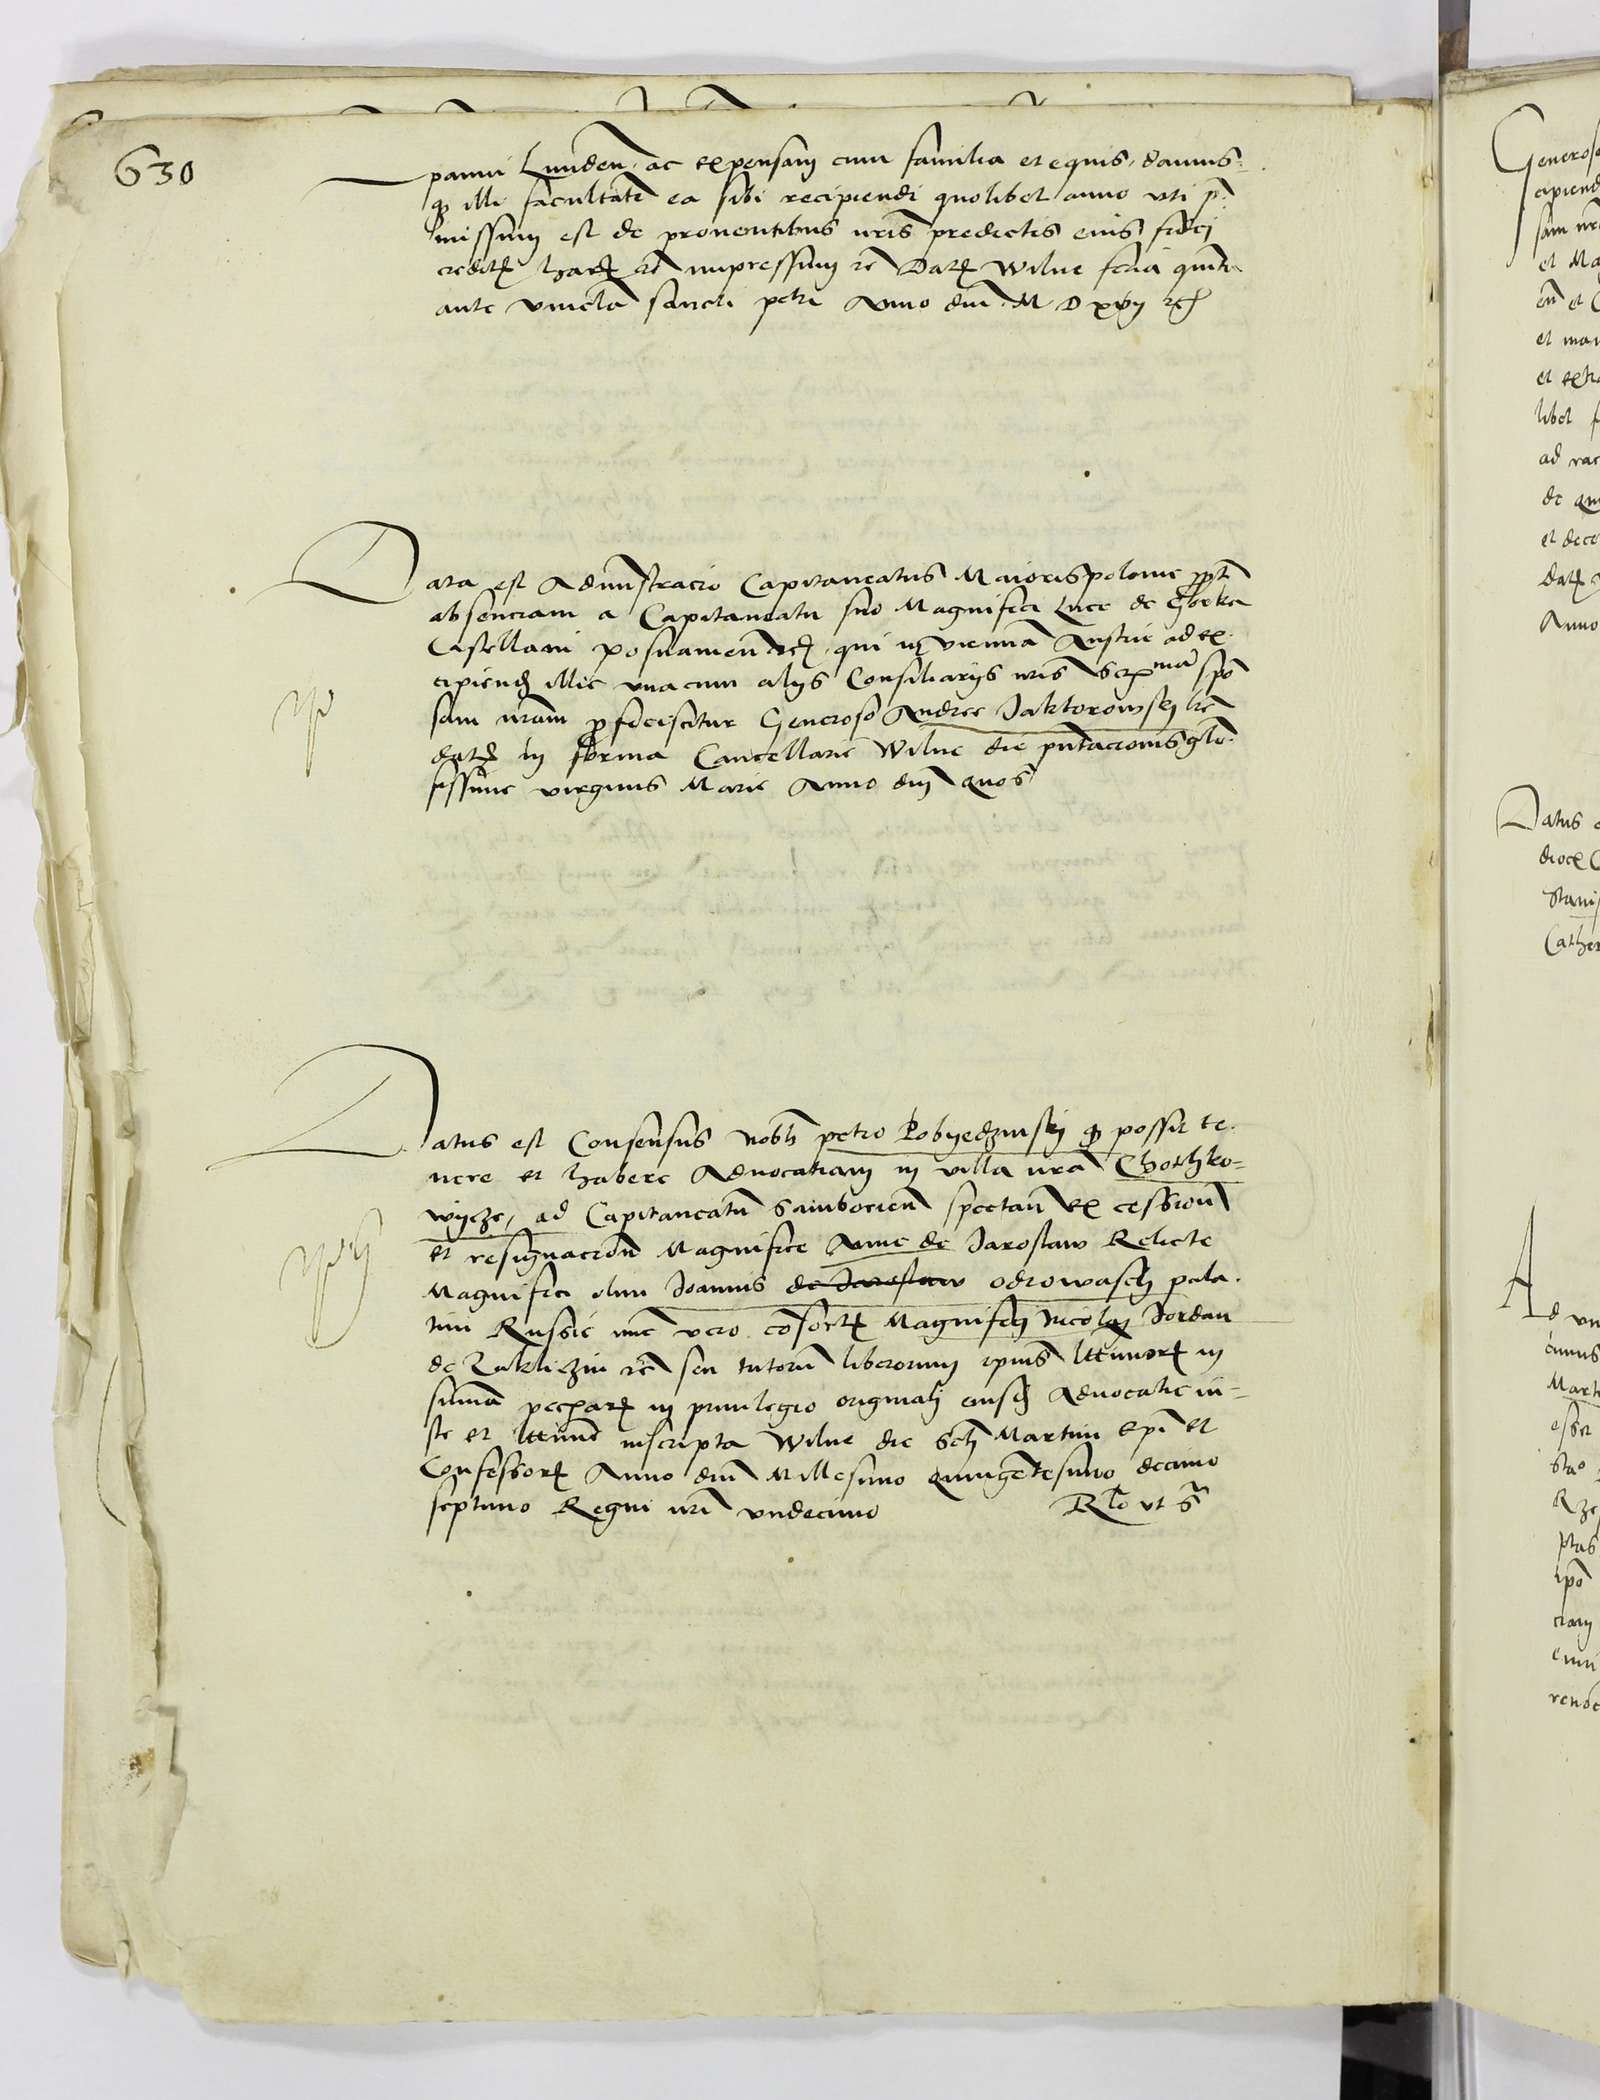 630
panni Lunden. ac expensam cum familia et equis, damus
q illi facultatē ea sibi recipiendi quolibet anno uti p
missum est de proventibus nris predictis eius fidei
credit har rē impressum rē Dat Wilne feria quinta
ante vincla sancti petri Anno dni M D xvij
Data est Administracio Capitaneatus Maiorispolonie
absenciam a Capitaneatu suo Magnifici Luce de Gorka
Castellani posnanien qui in viennā Austrie ad ex
cipiend illic una cum alijs Consiliarijs nris Ser mā spō
sam nram proficiscitur Generoso Andree Jaktorowskij
dat in forma Cancellarie Wilne die pntacionis glo
sissime virginis Marie Anno dni quos
Datus est Consensus nobli petro Pobyedzinskij q possit te
nere et habere Advocatiam in villa nra Chothko-
wycze, ad Capitaneatū Samborien spectan ex cession
et resignacion Magnifice Anne de Jaroslaw Relicte
Magnifici olim Joannis de Jaroslaw odrowasch pala
tini Russie nūc vero cōsort Magnifici Nicolai Jordan
de Zakliczin rē seu tutorū liberorum ipius in
sumā in privilegio originali eiusd Advocatie iu-
ste et inscripta Wilne die Scti Martini Epi et
Confessor Anno dni Millesimo quingētesimo decimo
septimo Regni nri undecimo
Rlo ut S
Generos
cipiend
sam nr
et Ma
et
et man
et ext
libet
ad rac
de qu
et deco
dat
Anno
Datus
dioc
Stanis
Cather
Ad
Mart
esset